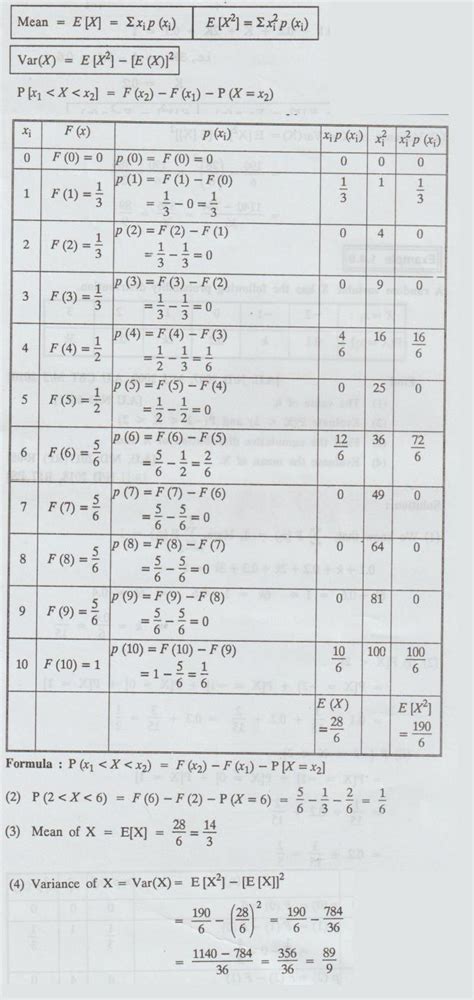 Mean = E [X] = Σx_i p (x_i) E [X²] = Σx_i² p (x_i)
Var(X) = E [X²] − [E (X)]²
P [x₁ < X < x₂] = F (x₂) − F (x₁) − P (X = x₂)
x_i F (x) p (x_i) x_i p (x_i) x_i² x_i² p (x_i)
0 F (0) = 0 p (0) = F (0) = 0 0 0 0
1 F (1) = 1/3 p (1) = F (1) − F (0) 1/3 1 1/3
= 1/3 − 0 = 1/3
2 F (2) = 1/3 p (2) = F (2) − F (1) 0 4 0
= 1/3 − 1/3 = 0
3 F (3) = 1/3 p (3) = F (3) − F (2) 0 9 0
= 1/3 − 1/3 = 0
4 F (4) = 1/2 p (4) = F (4) − F (3) 4/6 16 16/6
= 1/2 − 1/3 = 1/6
5 F (5) = 1/2 p (5) = F (5) − F (4) 0 25 0
= 1/2 − 1/2 = 0
6 F (6) = 5/6 p (6) = F (6) − F (5) 12/6 36 72/6
= 5/6 − 1/2 = 2/6
7 F (7) = 5/6 p (7) = F (7) − F (6) 0 49 0
= 5/6 − 5/6 = 0
8 F (8) = 5/6 p (8) = F (8) − F (7) 0 64 0
= 5/6 − 5/6 = 0
9 F (9) = 5/6 p (9) = F (9) − F (8) 0 81 0
= 5/6 − 5/6 = 0
10 F (10) = 1 p (10) = F (10) − F (9) 10/6 100 100/6
= 1 − 5/6 = 1/6
E (X) E [X²]
= 28/6 = 190/6
Formula : P (x₁ < X < x₂) = F (x₂) − F (x₁) − P [X = x₂]
(2) P (2 < X < 6) = F (6) − F (2) − P (X = 6) = 5/6 − 1/3 − 2/6 = 1/6
(3) Mean of X = E[X] = 28/6 = 14/3
(4) Variance of X = Var(X) = E [X²] − [E [X]]²
= 190/6 − (28/6)² = 190/6 − 784/36
= 1140 − 784/36 = 356/36 = 89/9